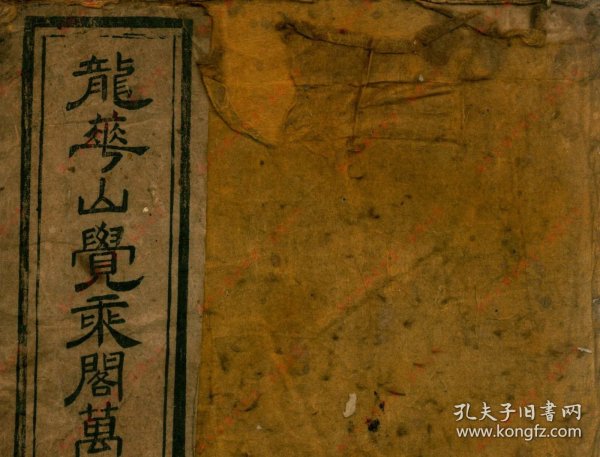 龍華山覺乘閣萬
孔夫子旧書网
www.kongfz.com